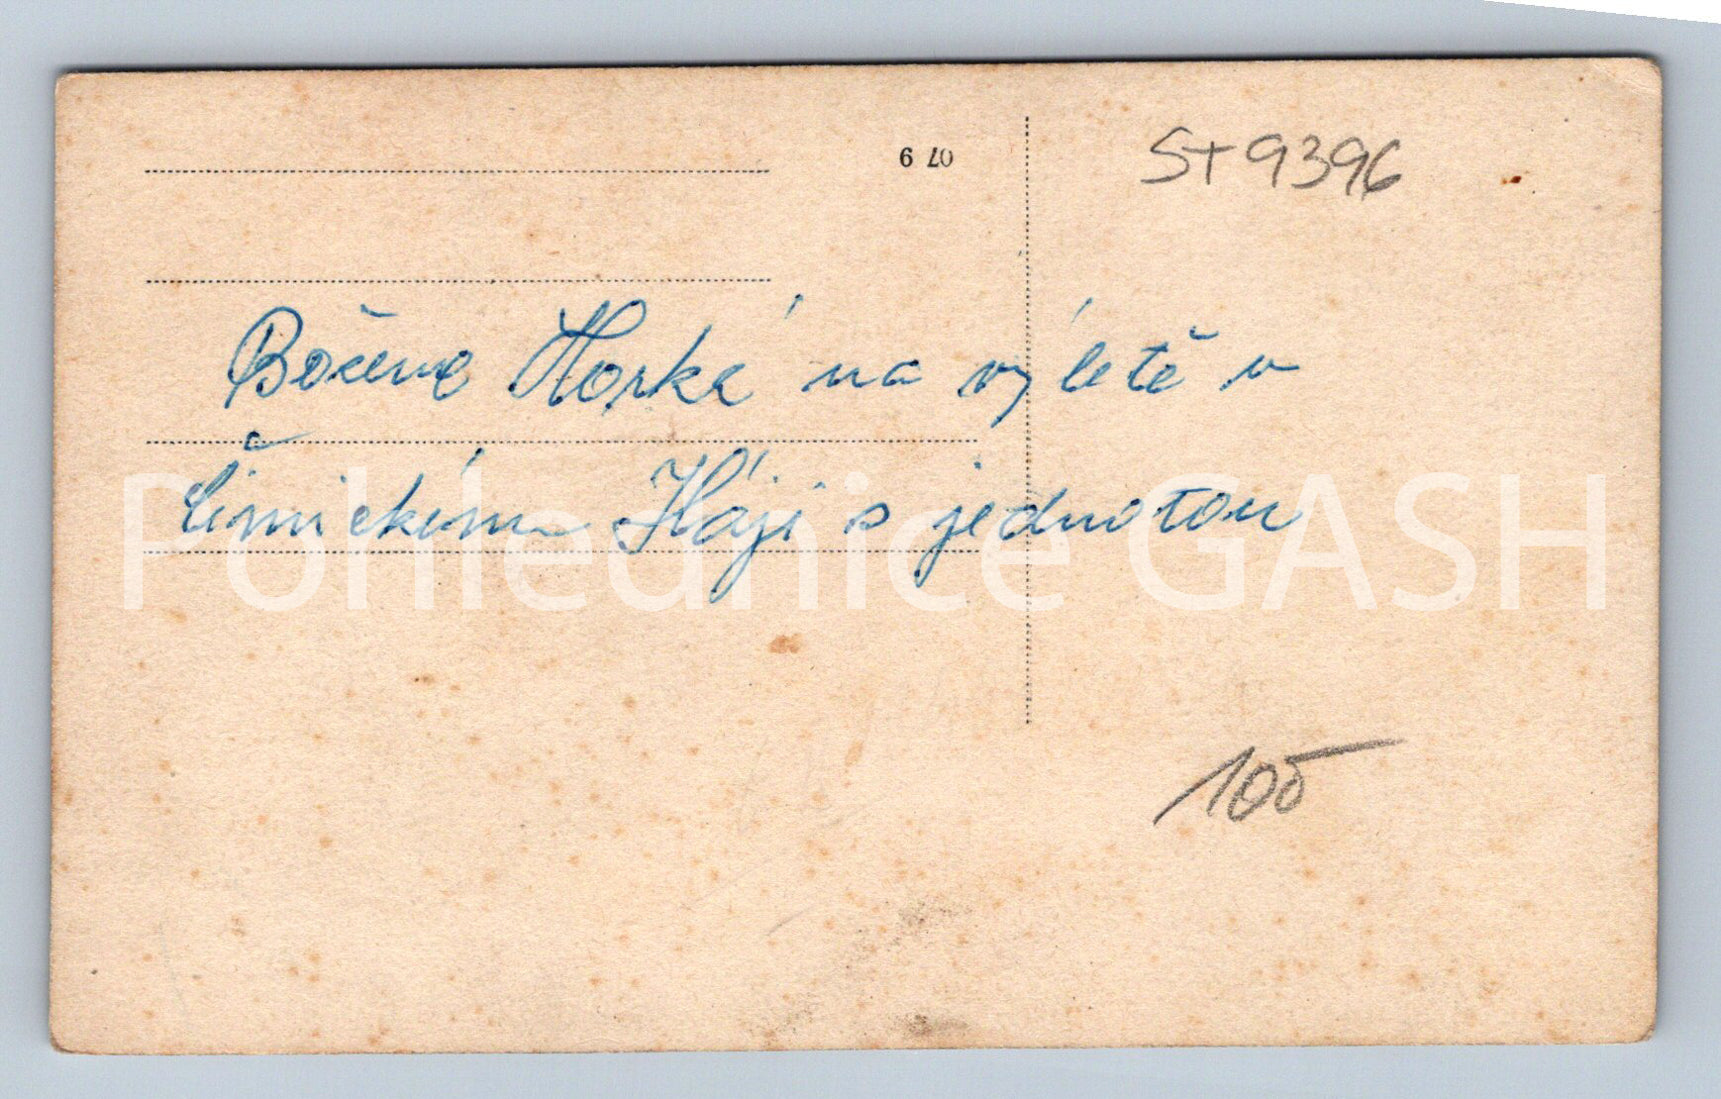 6 40
ST 9396
Božena Horká na výletě v
Čimickém Háji s jednotou
Pohlednice GASH
100